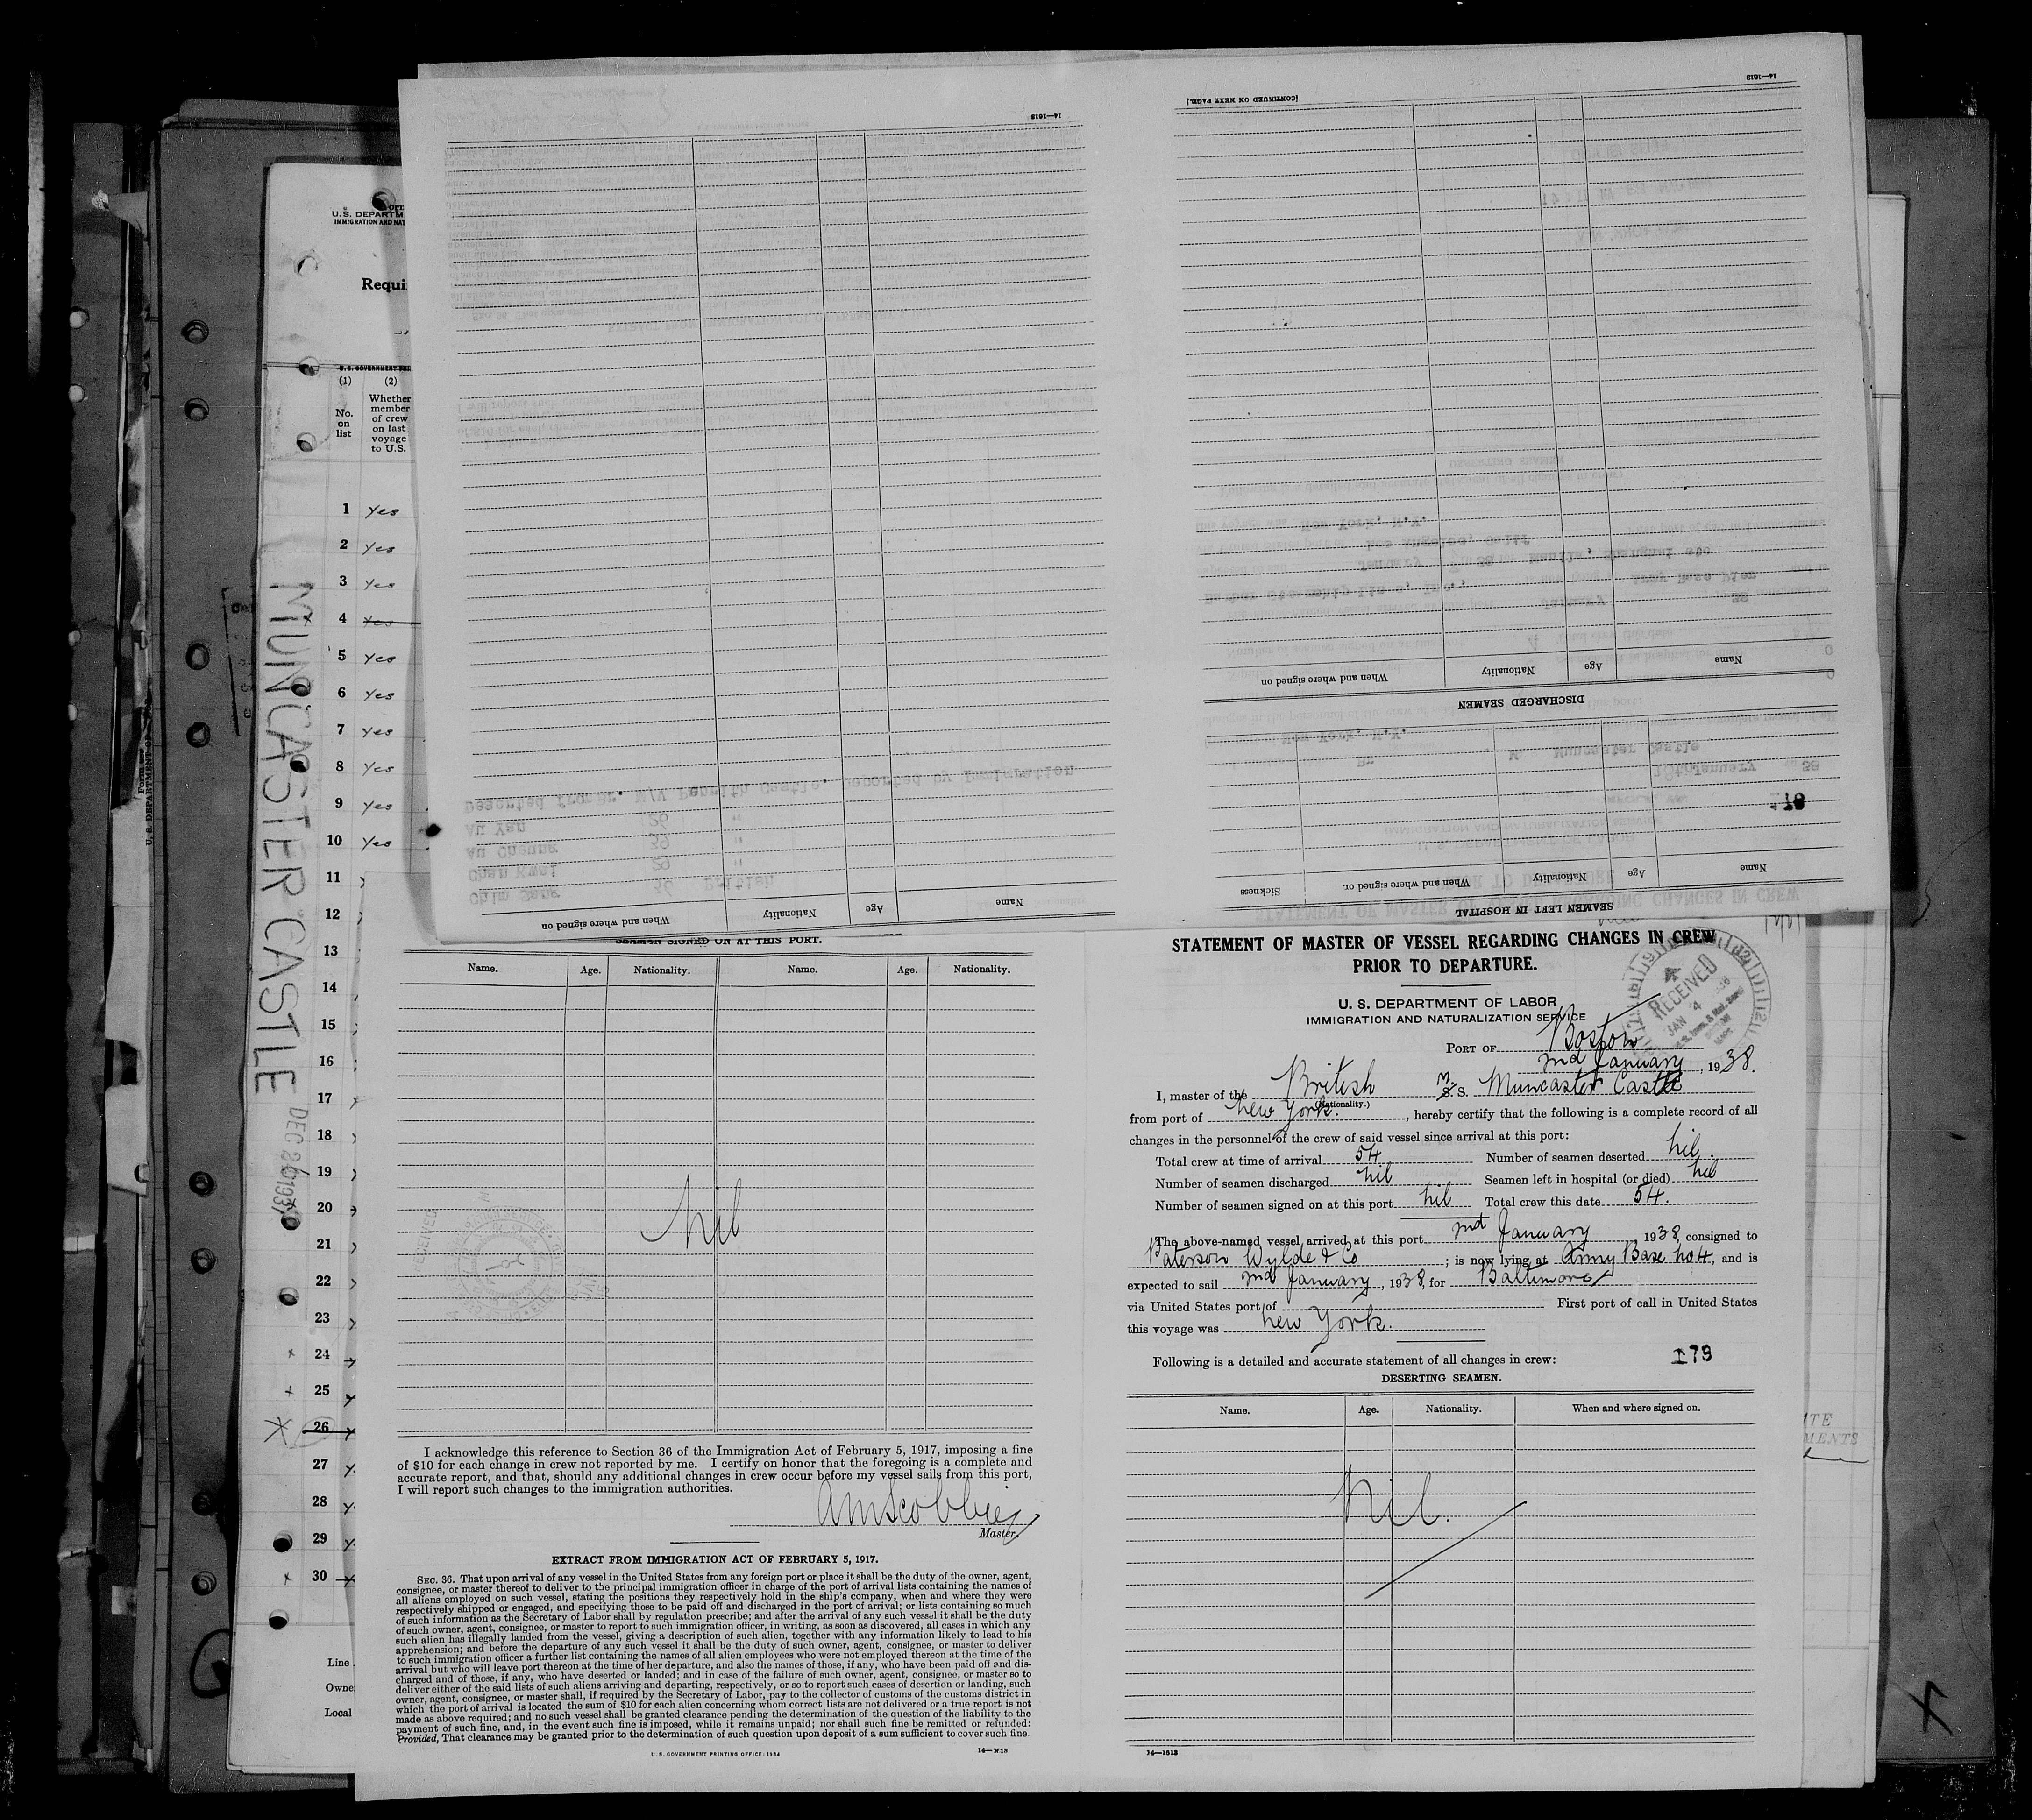 14—1613
[CONTINUED ON NEXT PAGE.]
14—1613
Name
Age
Nationality
When and where signed on
DISCHARGED SEAMEN
Name
Age
Nationality
When and where signed on
Name
Age
Nationality
When and where signed on.
Sickness
SEAMEN LEFT IN HOSPITAL
Chim Sang 36 British
Chan Kwai 29 "
Au Cheung 39 "
Au Yan 26 "
Deserted from Br. M/V Penrith Castle. Reported by Immigration
179
U. S. DEPARTM
IMMIGRATION AND NAT
Requi
(1)
(2)
No.
on
list
Whether
member
of crew
on last
voyage
to U.S.
1 Yes
2 Yes
3 Yes
4 Yes
5 Yes
6 Yes
7 Yes
8 Yes
9 Yes
10 Yes
11
12
13
14
15
16
17
18
19
20
21
22
23
24
25
26
27
28
29
30
Line
Owne
Local
MUNCASTER CASTLE
DEC 26 1937
SEAMEN SIGNED ON AT THIS PORT.
Name. Age. Nationality. Name. Age. Nationality.
Nil
I acknowledge this reference to Section 36 of the Immigration Act of February 5, 1917, imposing a fine
of $10 for each change in crew not reported by me. I certify on honor that the foregoing is a complete and
accurate report, and that, should any additional changes in crew occur before my vessel sails from this port,
I will report such changes to the immigration authorities.
AMScobbie
Master.
EXTRACT FROM IMMIGRATION ACT OF FEBRUARY 5, 1917.
SEC. 36. That upon arrival of any vessel in the United States from any foreign port or place it shall be the duty of the owner, agent,
consignee, or master thereof to deliver to the principal immigration officer in charge of the port of arrival lists containing the names of
all aliens employed on such vessel, stating the positions they respectively hold in the ship's company, when and where they were
respectively shipped or engaged, and specifying those to be paid off and discharged in the port of arrival; or lists containing so much
of such information as the Secretary of Labor shall by regulation prescribe; and after the arrival of any such vessel it shall be the duty
of such owner, agent, consignee, or master to report to such immigration officer, in writing, as soon as discovered, all cases in which any
such alien has illegally landed from the vessel, giving a description of such alien, together with any information likely to lead to his
apprehension; and before the departure of any such vessel it shall be the duty of such owner, agent, consignee, or master to deliver
to such immigration officer a further list containing the names of all alien employees who were not employed thereon at the time of the
arrival but who will leave port thereon at the time of her departure, and also the names of those, if any, who have been paid off and dis-
charged and of those, if any, who have deserted or landed; and in case of the failure of such owner, agent, consignee, or master so to
deliver either of the said lists of such aliens arriving and departing, respectively, or so to report such cases of desertion or landing, such
owner, agent, consignee, or master shall, if required by the Secretary of Labor, pay to the collector of customs of the customs district in
which the port of arrival is located the sum of $10 for each alien concerning whom correct lists are not delivered or a true report is not
made as above required; and no such vessel shall be granted clearance pending the determination of the question of the liability to the
payment of such fine, and, in the event such fine is imposed, while it remains unpaid; nor shall such fine be remitted or refunded:
Provided, That clearance may be granted prior to the determination of such question upon deposit of a sum sufficient to cover such fine.
U. S. GOVERNMENT PRINTING OFFICE: 1934
STATEMENT OF MASTER OF VESSEL REGARDING CHANGES IN CREW
PRIOR TO DEPARTURE.
U. S. DEPARTMENT OF LABOR
IMMIGRATION AND NATURALIZATION SERVICE
RECEIVED
JAN 4
PORT OF Boston
2nd January, 1938.
I, master of the British M. S. S. Muncaster Castle
(Nationality.)
from port of New York., hereby certify that the following is a complete record of all
changes in the personnel of the crew of said vessel since arrival at this port:
Total crew at time of arrival 54 Number of seamen deserted nil.
Number of seamen discharged nil Seamen left in hospital (or died) nil
Number of seamen signed on at this port nil Total crew this date 54.
The above-named vessel arrived at this port 2nd January 1938, consigned to
Paterson Wylde & Co; is now lying at Army Base No 4, and is
expected to sail 2nd January, 1938, for Baltimore
via United States port of First port of call in United States
this voyage was New York.
Following is a detailed and accurate statement of all changes in crew: 179
DESERTING SEAMEN.
Name. Age. Nationality. When and where signed on.
Nil.
14—1613